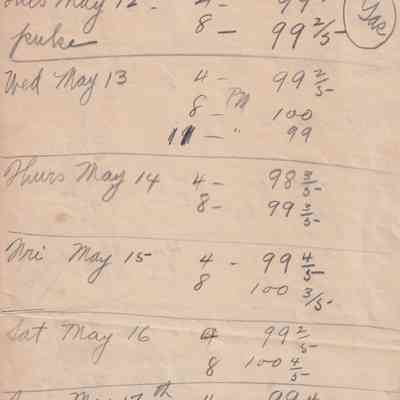 Tues May 12 - 4 - 99
puke 8 - 99 2/5
Wed May 13 4 - 99 2/5
8 - PM 100
11 - " 99
Thurs May 14 4 - 98 3/5
8 - 99 3/5
Fri May 15 4 - 99 4/5
8 100 3/5
Sat May 16 4 99 2/5
8 100 4/5
May 17th 99 4